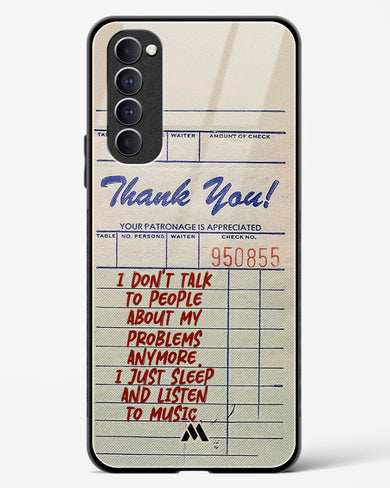 TAB WAITER AMOUNT OF CHECK
Thank You!
YOUR PATRONAGE IS APPRECIATED
TABLE NO. PERSONS WAITER CHECK NO.
950855
I DON'T TALK
TO PEOPLE
ABOUT MY
PROBLEMS
ANYMORE.
I JUST SLEEP
AND LISTEN
TO MUSIC.